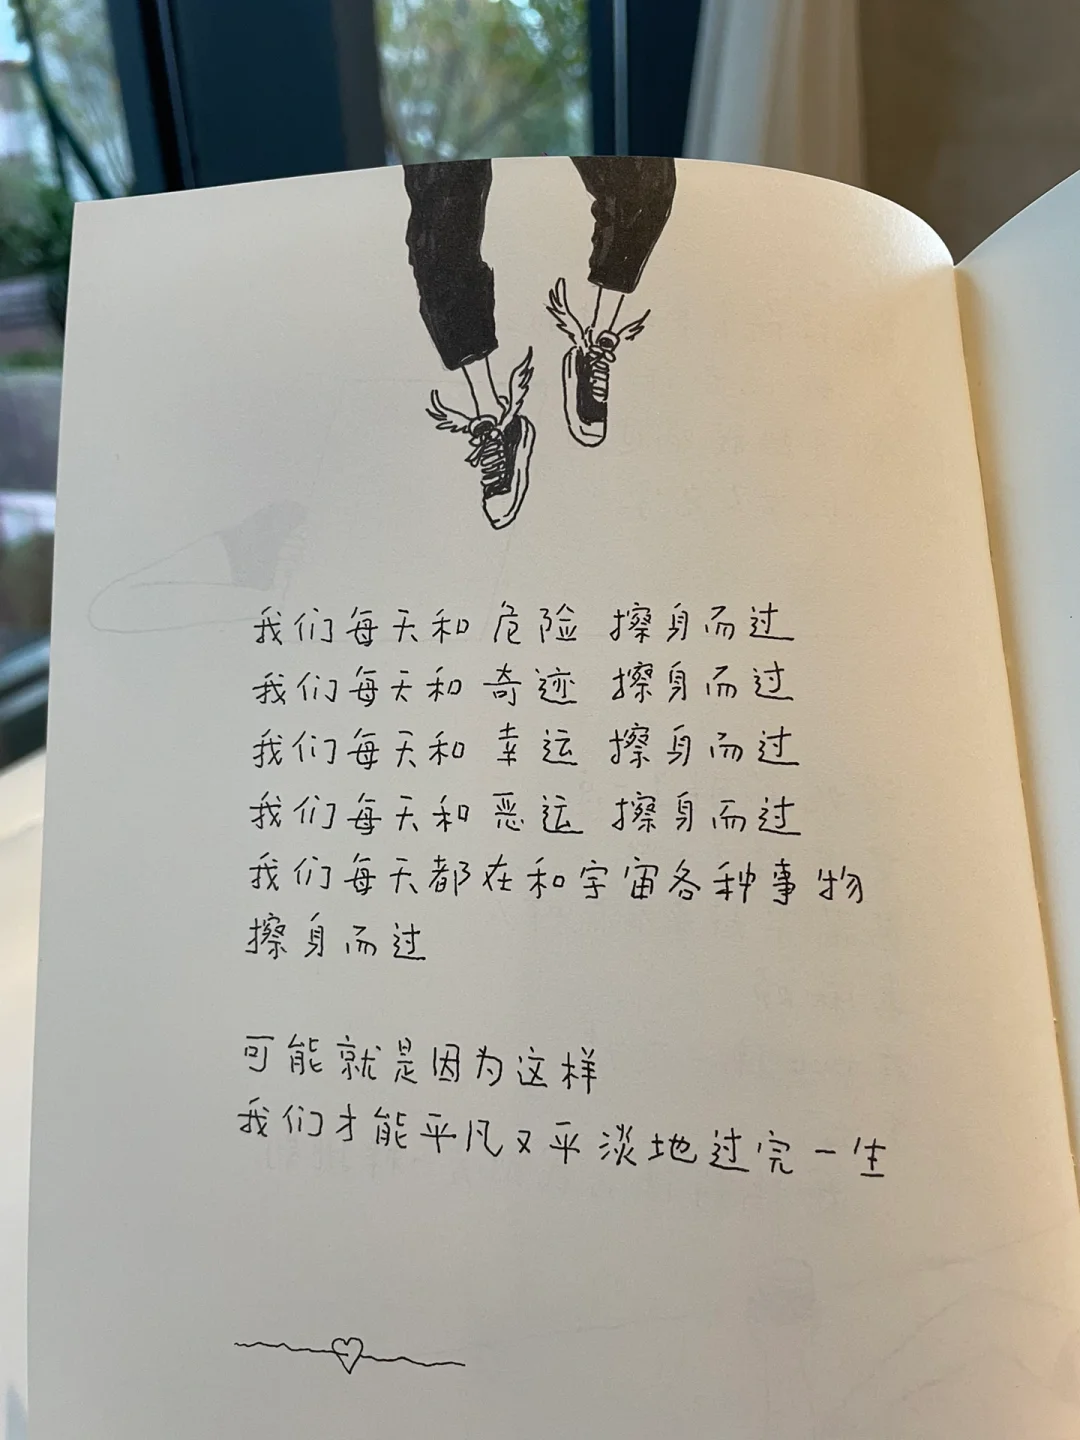 我们每天和 危险 擦身而过
我们每天和 奇迹 擦身而过
我们每天和 幸运 擦身而过
我们每天和 恶运 擦身而过
我们每天都在和宇宙各种事物
擦身而过
可能就是因为这样
我们才能平凡又平淡地过完一生